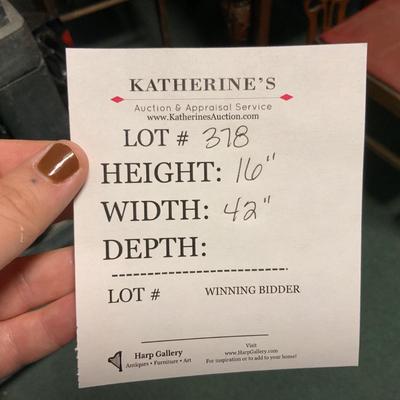 KATHERINE'S
Auction & Appraisal Service
www.KatherinesAuction.com
LOT # 378
HEIGHT: 16"
WIDTH: 42"
DEPTH:
LOT # WINNING BIDDER
Harp Gallery
Antiques • Furniture • Art
Visit
www.HarpGallery.com
For inspiration or to add to your home!